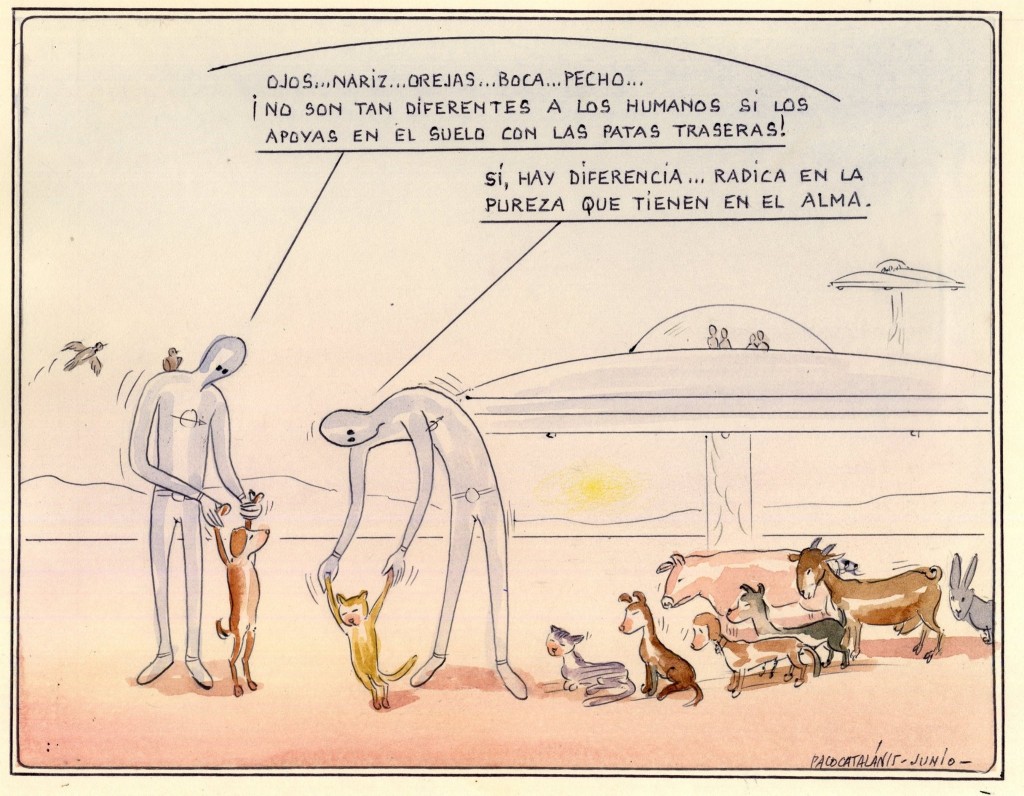 OJOS...NARIZ...OREJAS...BOCA...PECHO...
¡NO SON TAN DIFERENTES A LOS HUMANOS SÍ LOS
APOYAS EN EL SUELO CON LAS PATAS TRASERAS!
SÍ, HAY DIFERENCIA... RADICA EN LA
PUREZA QUE TIENEN EN EL ALMA.
PACOCATALÁN15-JUNIO-